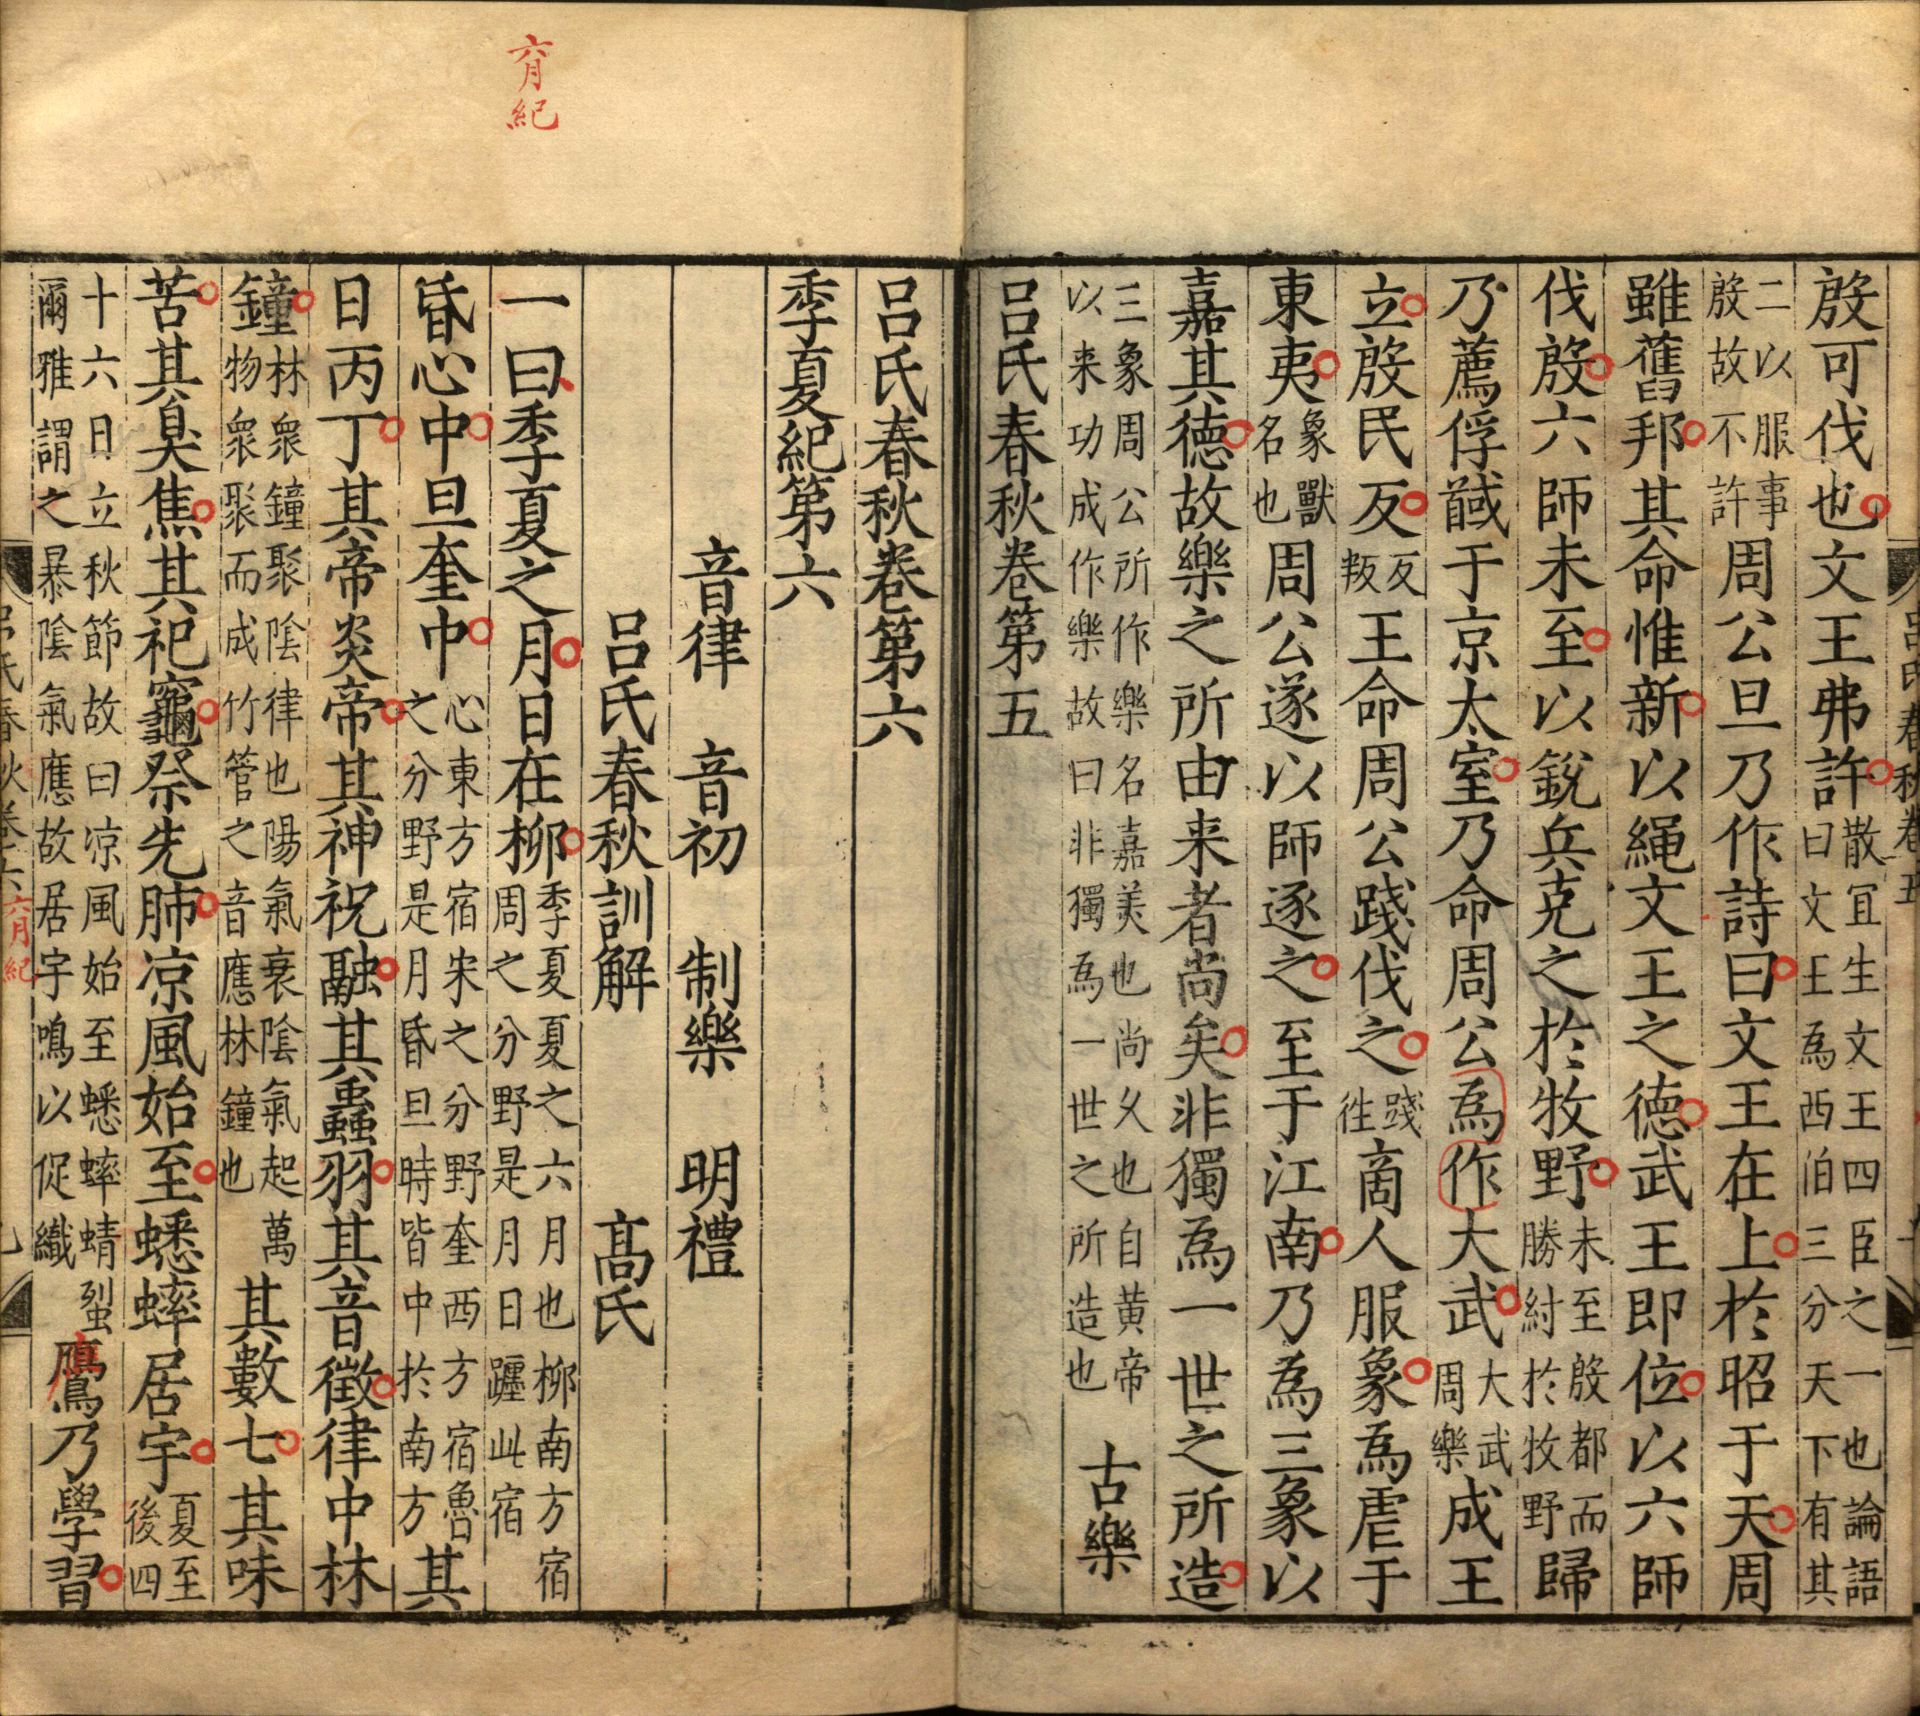 殷可伐也文王弗許散宜生文王四臣之一也論語曰文王為西伯三分天下有其
二以服事殷故不許周公旦乃作詩曰文王在上於昭于天周
雖舊邦其命惟新以繩文王之德武王即位以六師
伐殷六師未至以銳兵克之於牧野未至殷都而勝紂於牧野歸
乃薦俘馘于京太室乃命周公為作大武大武周樂成王
立殷民反反叛王命周公踐伐之踐徃商人服象為虐于
東夷象獸名也周公遂以師逐之至于江南乃為三象以
嘉其德故樂之所由来者尚矣非獨為一世之所造
三象周公所作樂名嘉美也尚久也自黄帝以来功成作樂故曰非獨為一世之所造也古樂
吕氏春秋卷第五
六月紀
吕氏春秋卷第六
季夏紀第六
音律 音初 制樂 明禮
吕氏春秋訓解 高氏
一曰季夏之月日在柳季夏夏之六月也柳南方宿周之分野是月日躔此宿
昏心中旦奎中心東方宿宋之分野奎西方宿魯之分野是月昏旦時皆中於南方其
日丙丁其帝炎帝其神祝融其蟲羽其音徵律中林
鐘林衆鐘聚陰律也陽氣衰陰氣起萬物衆聚而成竹管之音應林鐘也其數七其味
苦其臭焦其祀竈祭先肺凉風始至蟋蟀居宇夏至後四
十六日立秋節故曰凉風始至蟋蟀蜻蛚爾雅謂之暴陰氣應故居宇鳴以促織鷹乃學習
六月紀